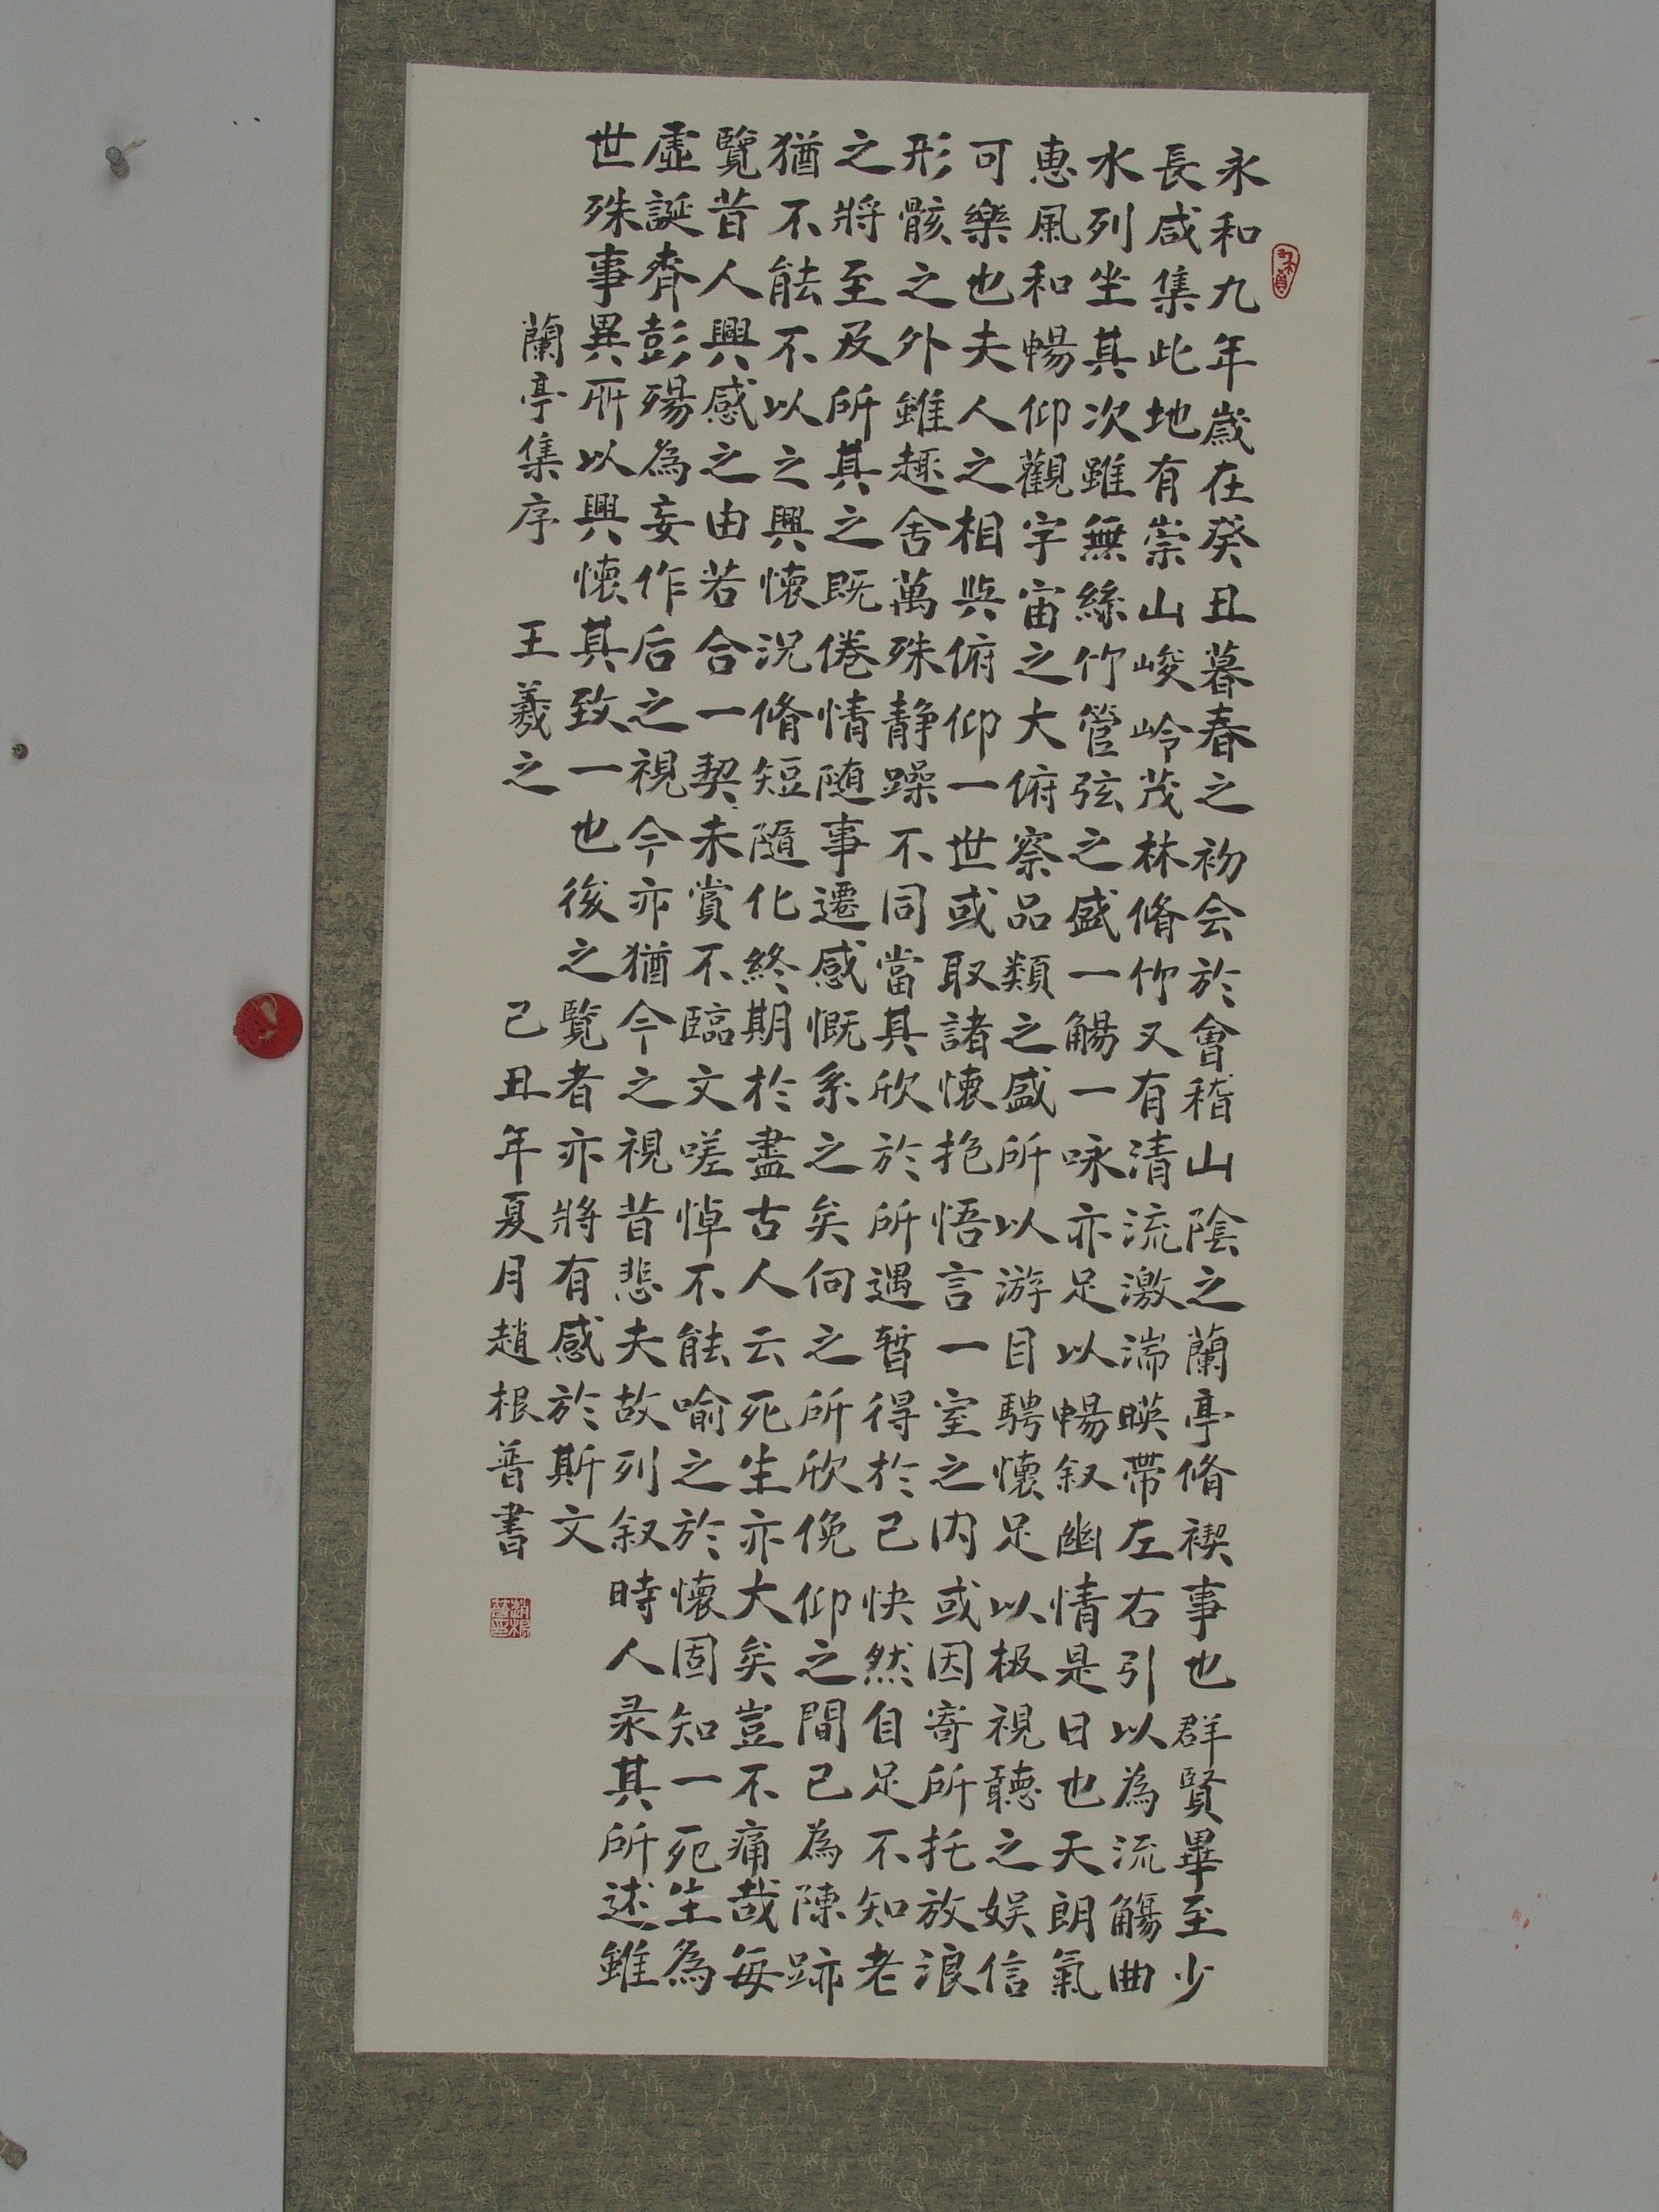 永和九年歲在癸丑暮春之初会於會稽山陰之蘭亭脩禊事也群賢畢至少
長咸集此地有崇山峻岭茂林脩竹又有清流激湍暎帶左右引以為流觴曲
水列坐其次雖無絲竹管弦之盛一觴一咏亦足以暢叙幽情是日也天朗氣
惠風和暢仰觀宇宙之大俯察品類之盛所以游目騁懷足以极視聽之娱信
可樂也夫人之相與俯仰一世或取諸懷抱悟言一室之内或因寄所托放浪
形骸之外雖趣舍萬殊静躁不同當其欣於所遇暫得於己快然自足不知老
之將至及所其之既倦情随事遷感慨系之矣向之所欣俛仰之間已為陳跡
猶不能不以之興懷況脩短隨化終期於盡古人云死生亦大矣豈不痛哉每
覽昔人興感之由若合一契未賞不臨文嗟悼不能喻之於懷固知一死生為
虛誕齊彭殤為妄作后之視今亦猶今之視昔悲夫故列叙時人录其所述雖
世殊事異所以興懷其致一也後之覽者亦將有感於斯文
蘭亭集序 王羲之 己丑年夏月趙根普書